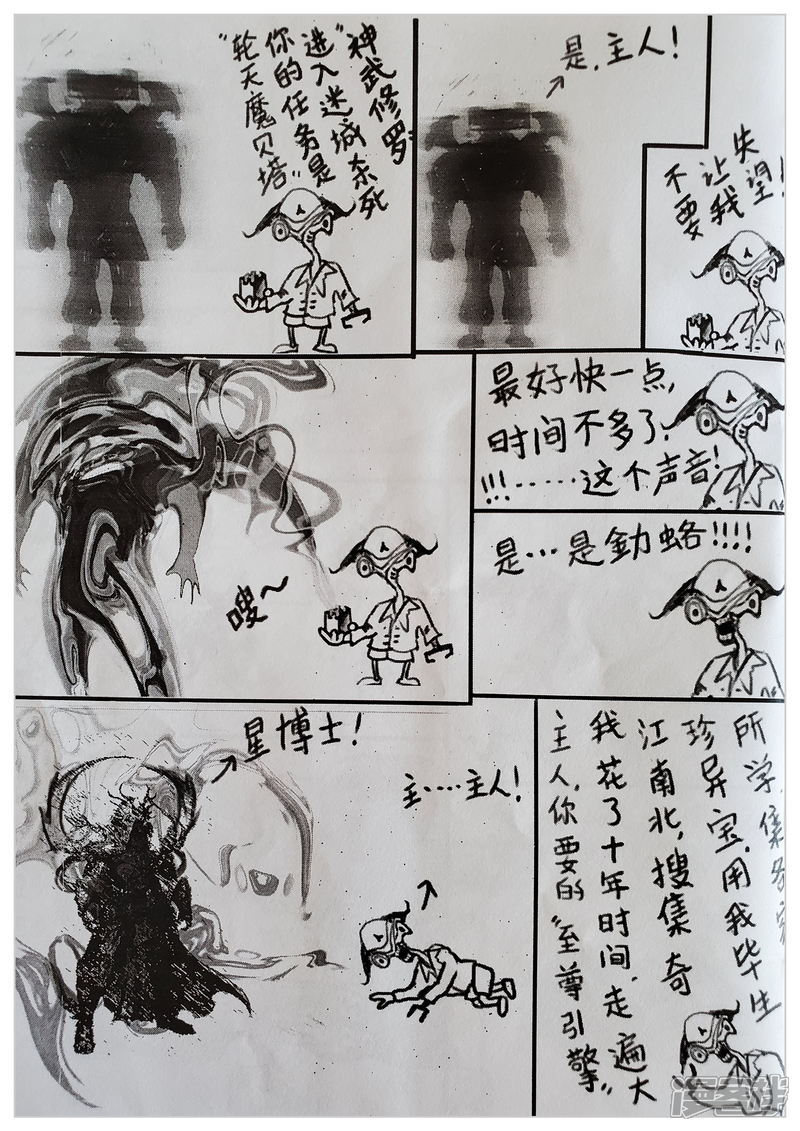 "神武修罗
进入迷城杀死
你的任务是
"轮天魔贝塔"
是，主人！
不要
让我
失望！
嗖～
最好快一点，
时间不多了，
!!!……这个声音！
是…是釛蛒!!!!
星博士！
主….主人！
主人，你要的"至尊引擎"
我花了十年时间，走遍大
江南北，搜集奇
珍异宝，用我毕生
所学，集各
漫客栈